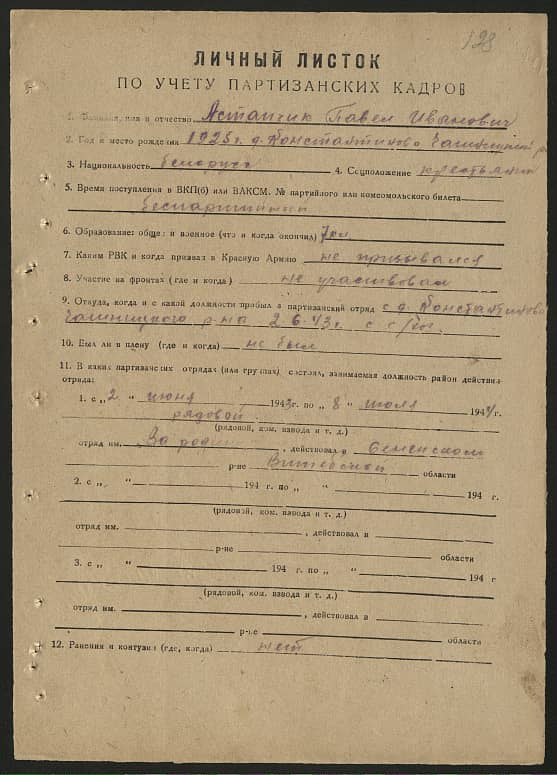 128
ЛИЧНЫЙ ЛИСТОК
ПО УЧЕТУ ПАРТИЗАНСКИХ КАДРОВ
1. Фамилия, имя и отчество Астапчик Павел Иванович
2. Год и место рождения 1925 г. д. Константиново Чашникский р
3. Национальность белорус 4. Соцположение крестьянин
5. Время поступления в ВКП(б) или ВЛКСМ, № партийного или комсомольского билета
беспартийный
6. Образование: общее и военное (что и когда окончил) 7 кл
7. Каким РВК и когда призван в Красную Армию не призывался
8. Участие на фронтах (где и когда) не участвовал
9. Откуда, когда и с какой должности прибыл в партизанский отряд с д. Константиново
Чашникского р-на 2.6.43 г. с
10. Был ли в плену (где и когда) не был
11. В каких партизанских отрядах (или группах) состоял, занимаемая должность район действия
отряда:
1. с „ 2 “ июня 1943 г. по „ 8 “ июля 1944 г.
рядовой
(рядовой, ком. взвода и т. д.)
отряд им. За родину , действовал в Сенненском
р-не Витебской области
2. с „ “ 194 г. по „ “ 194 г.
(рядовой, ком. взвода и т. д.)
отряд им. , действовал в
р-не области
3. с „ “ 194 г. по „ “ 194 г
(рядовой, ком. взвода и т. д.)
отряд им. , действовал в
р-не области
12. Ранения и контузии (где, когда) нет